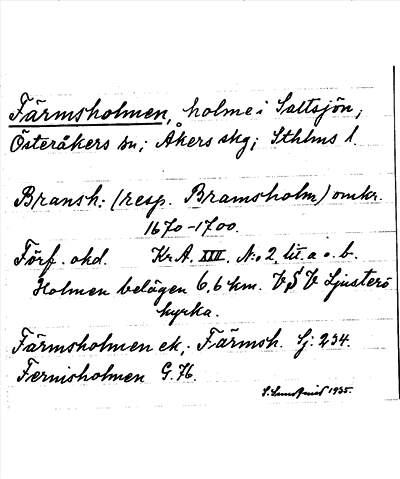 Färmsholmen, holme i Saltsjön,
Österåkers sn; Åkers skg; Sthlms l.
Bransh: (resp. Bramsholm) omkr.
1670-1700.
Förf. okd. Kr.A. XIII. N:o 2, lit. a o. b.
Holmen belägen 6,6 km. V S V Ljusterö
kyrka.
Färmsholmen ek; Färmsh. Lj: 234.
Fernisholmen G. 76.
1935.